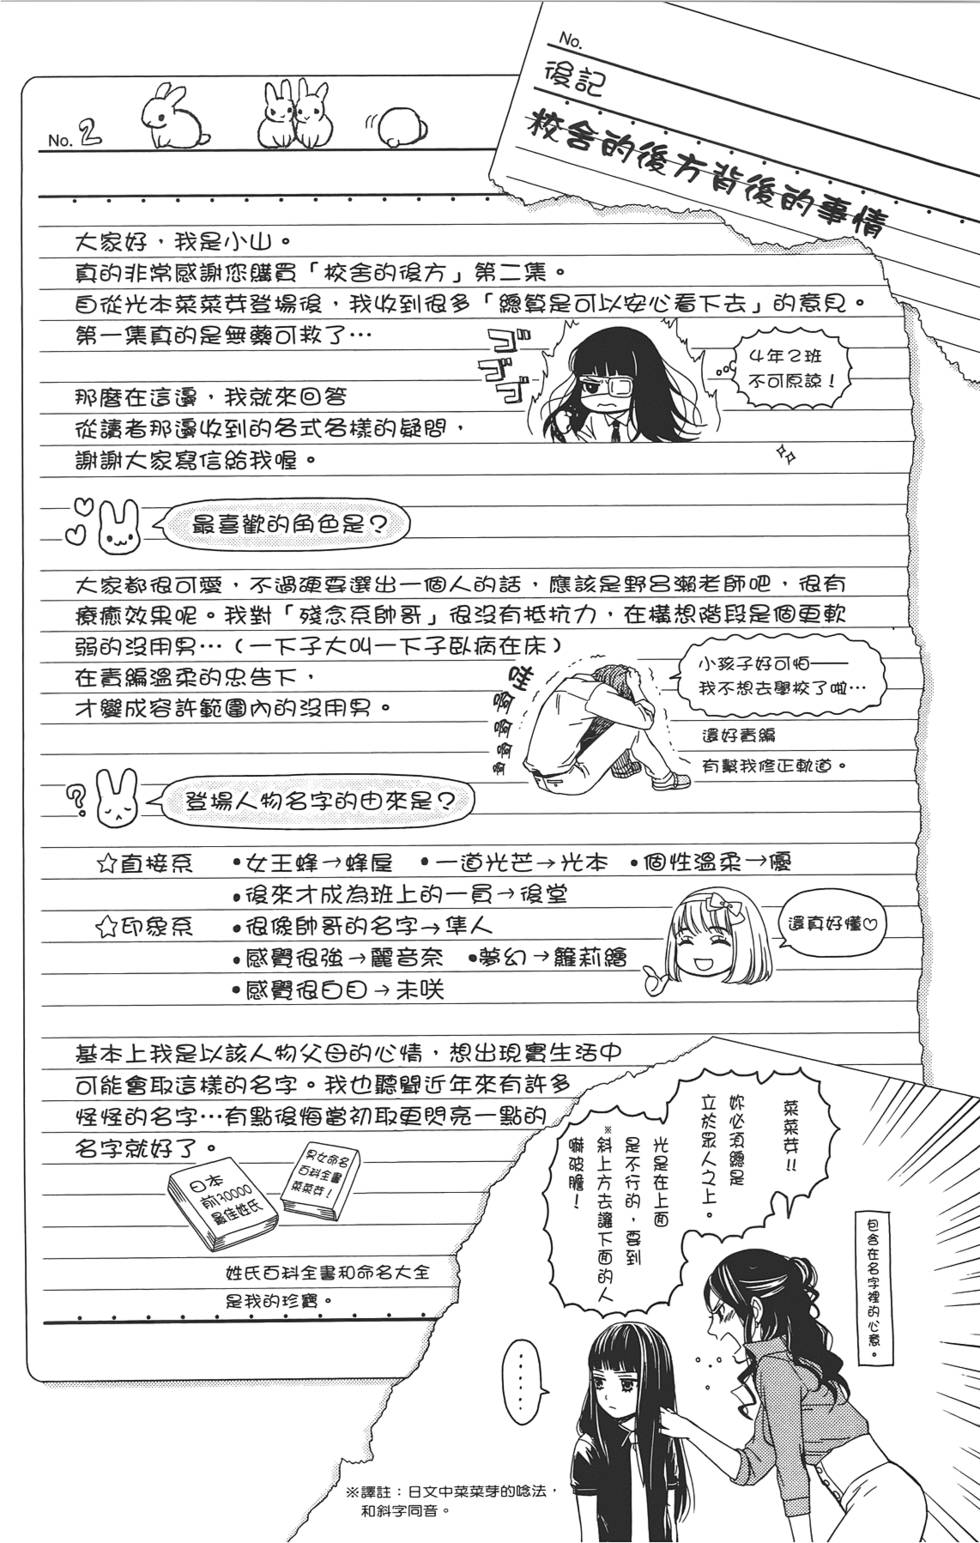 No.
後記
校舍的後方背後的事情
No. 2
大家好，我是小山。
真的非常感謝您購買「校舍的後方」第二集。
自從光本菜菜芽登場後，我收到很多「總算是可以安心看下去」的意見。
第一集真的是無藥可救了…
ゴゴゴ
4年2班
不可原諒！
那麼在這邊，我就來回答
從讀者那邊收到的各式各樣的疑問，
謝謝大家寫信給我喔。
最喜歡的角色是？
大家都很可愛，不過硬要選出一個人的話，應該是野呂瀨老師吧，很有
療癒效果呢。我對「殘念系帥哥」很沒有抵抗力，在構想階段是個更軟
弱的沒用男…（一下子大叫一下子臥病在床）
在責編溫柔的忠告下，
才變成容許範圍內的沒用男。
哇啊啊啊啊
小孩子好可怕——
我不想去學校了啦…
還好責編
有幫我修正軌道。
?
登場人物名字的由來是？
☆直接系 •女王蜂→蜂屋 •一道光芒→光本 •個性溫柔→優
•後來才成為班上的一員→後堂
☆印象系 •很像帥哥的名字→隼人
•感覺很強→麗音奈 •夢幻→籮莉繪
•感覺很白目→未咲
還真好懂♡
基本上我是以該人物父母的心情，想出現實生活中
可能會取這樣的名字。我也聽聞近年來有許多
怪怪的名字…有點後悔當初取更閃亮一點的
名字就好了。
日本
前30000
最佳姓氏
男女命名
百科全書
菜菜芽！
姓氏百科全書和命名大全
是我的珍寶。
菜菜芽!!
妳必須總是
立於眾人之上。
光是在上面
是不行的，要到
※斜上方去讓下面的人
嚇破膽！
包含在名字裡的心意。
……
※譯註：日文中菜菜芽的唸法，
和斜字同音。